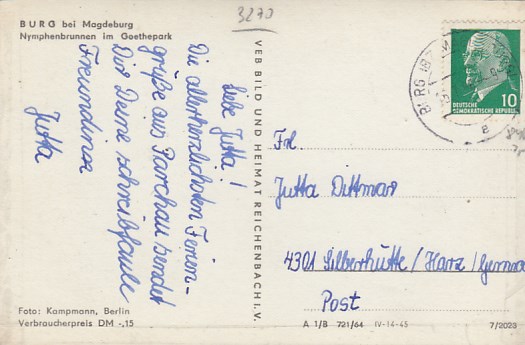 BURG bei Magdeburg
Nymphenbrunnen im Goethepark
3270
Liebe Jutta!
Die allerherzlichsten Ferien-
grüße aus Parchau sendet
Dir Deine schreibfaule
Freundin
Jutta
Foto: Kampmann, Berlin
Verbraucherpreis DM -,15
VEB BILD UND HEIMAT REICHENBACH I. V.
BURG
a
10
DEUTSCHE
DEMOKRATISCHE REPUBLIK
Frl.
Jutta Dittmar
4301 Silberhütte / Harz /
Post
A 1/B 721/64 IV-14-45
7/2023